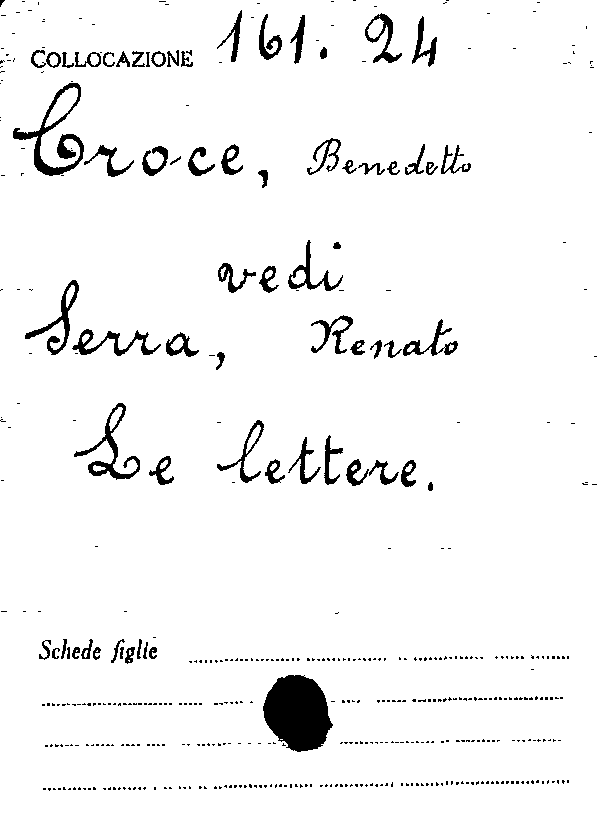 COLLOCAZIONE 161. 24
Croce, Benedetto
vedi
Serra, Renato
Le lettere.
Schede figlie